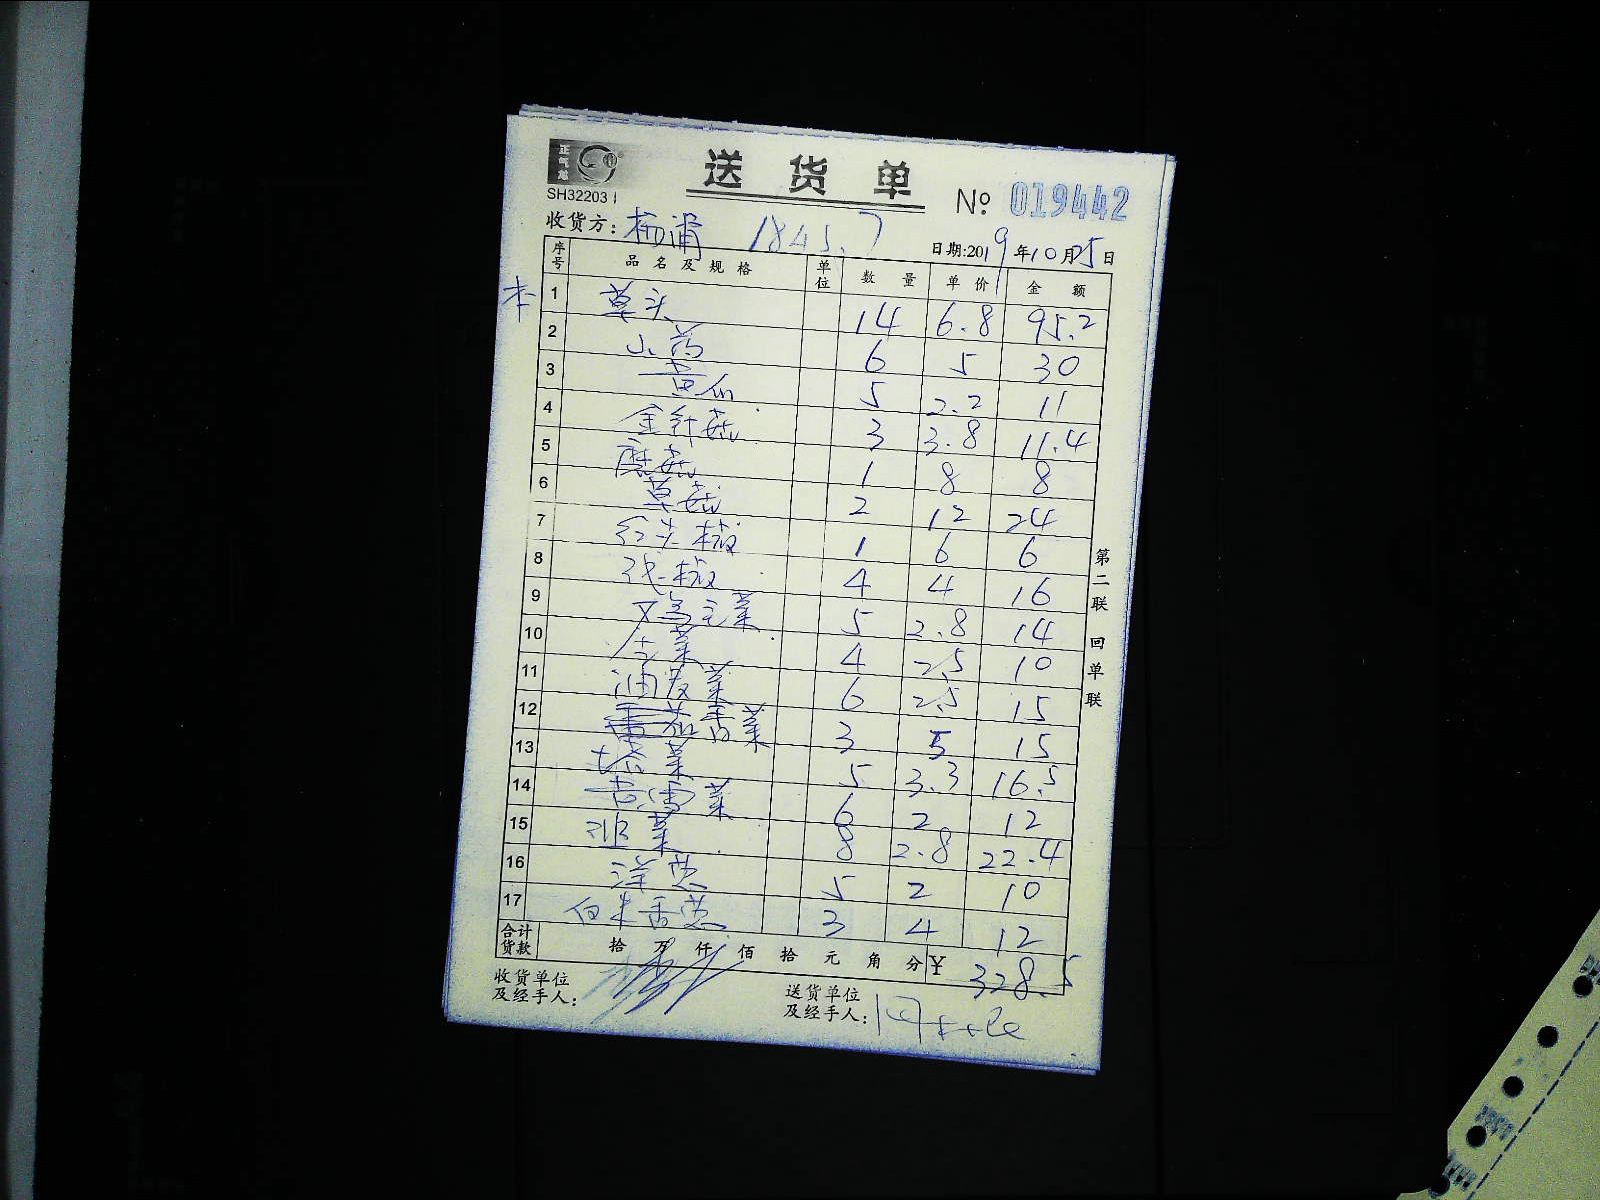 正气龙
送货单
SH32203
№ 019442
收货方: 杨浦 1845.7
日期:2019年10月5日
序号 品名及规格 单位 数量 单价 金额
本
1 草头 14 6.8 95.2
2 山药 6 5 30
3 黄瓜 5 2.2 11
4 金针菇 3 3.8 11.4
5 蘑菇 1 8 8
6 草菇 2 12 24
7 红头椒 1 6 6
8 尖椒 4 4 16
9 5 2.8 14
10 生菜 4 2.5 10
11 油麦菜 6 2.5 15
12 香菜 3 5 15
13 塔菜 5 3.3 16.5
14 菜 6 2 12
15 韭菜 8 2.8 22.4
16 洋葱 5 2 10
17 白米香葱 3 4 12
合计货款 拾 万 仟 佰 拾 元 角 分 ¥ 328.5
收货单位及经手人:
送货单位及经手人:
第二联 回单联